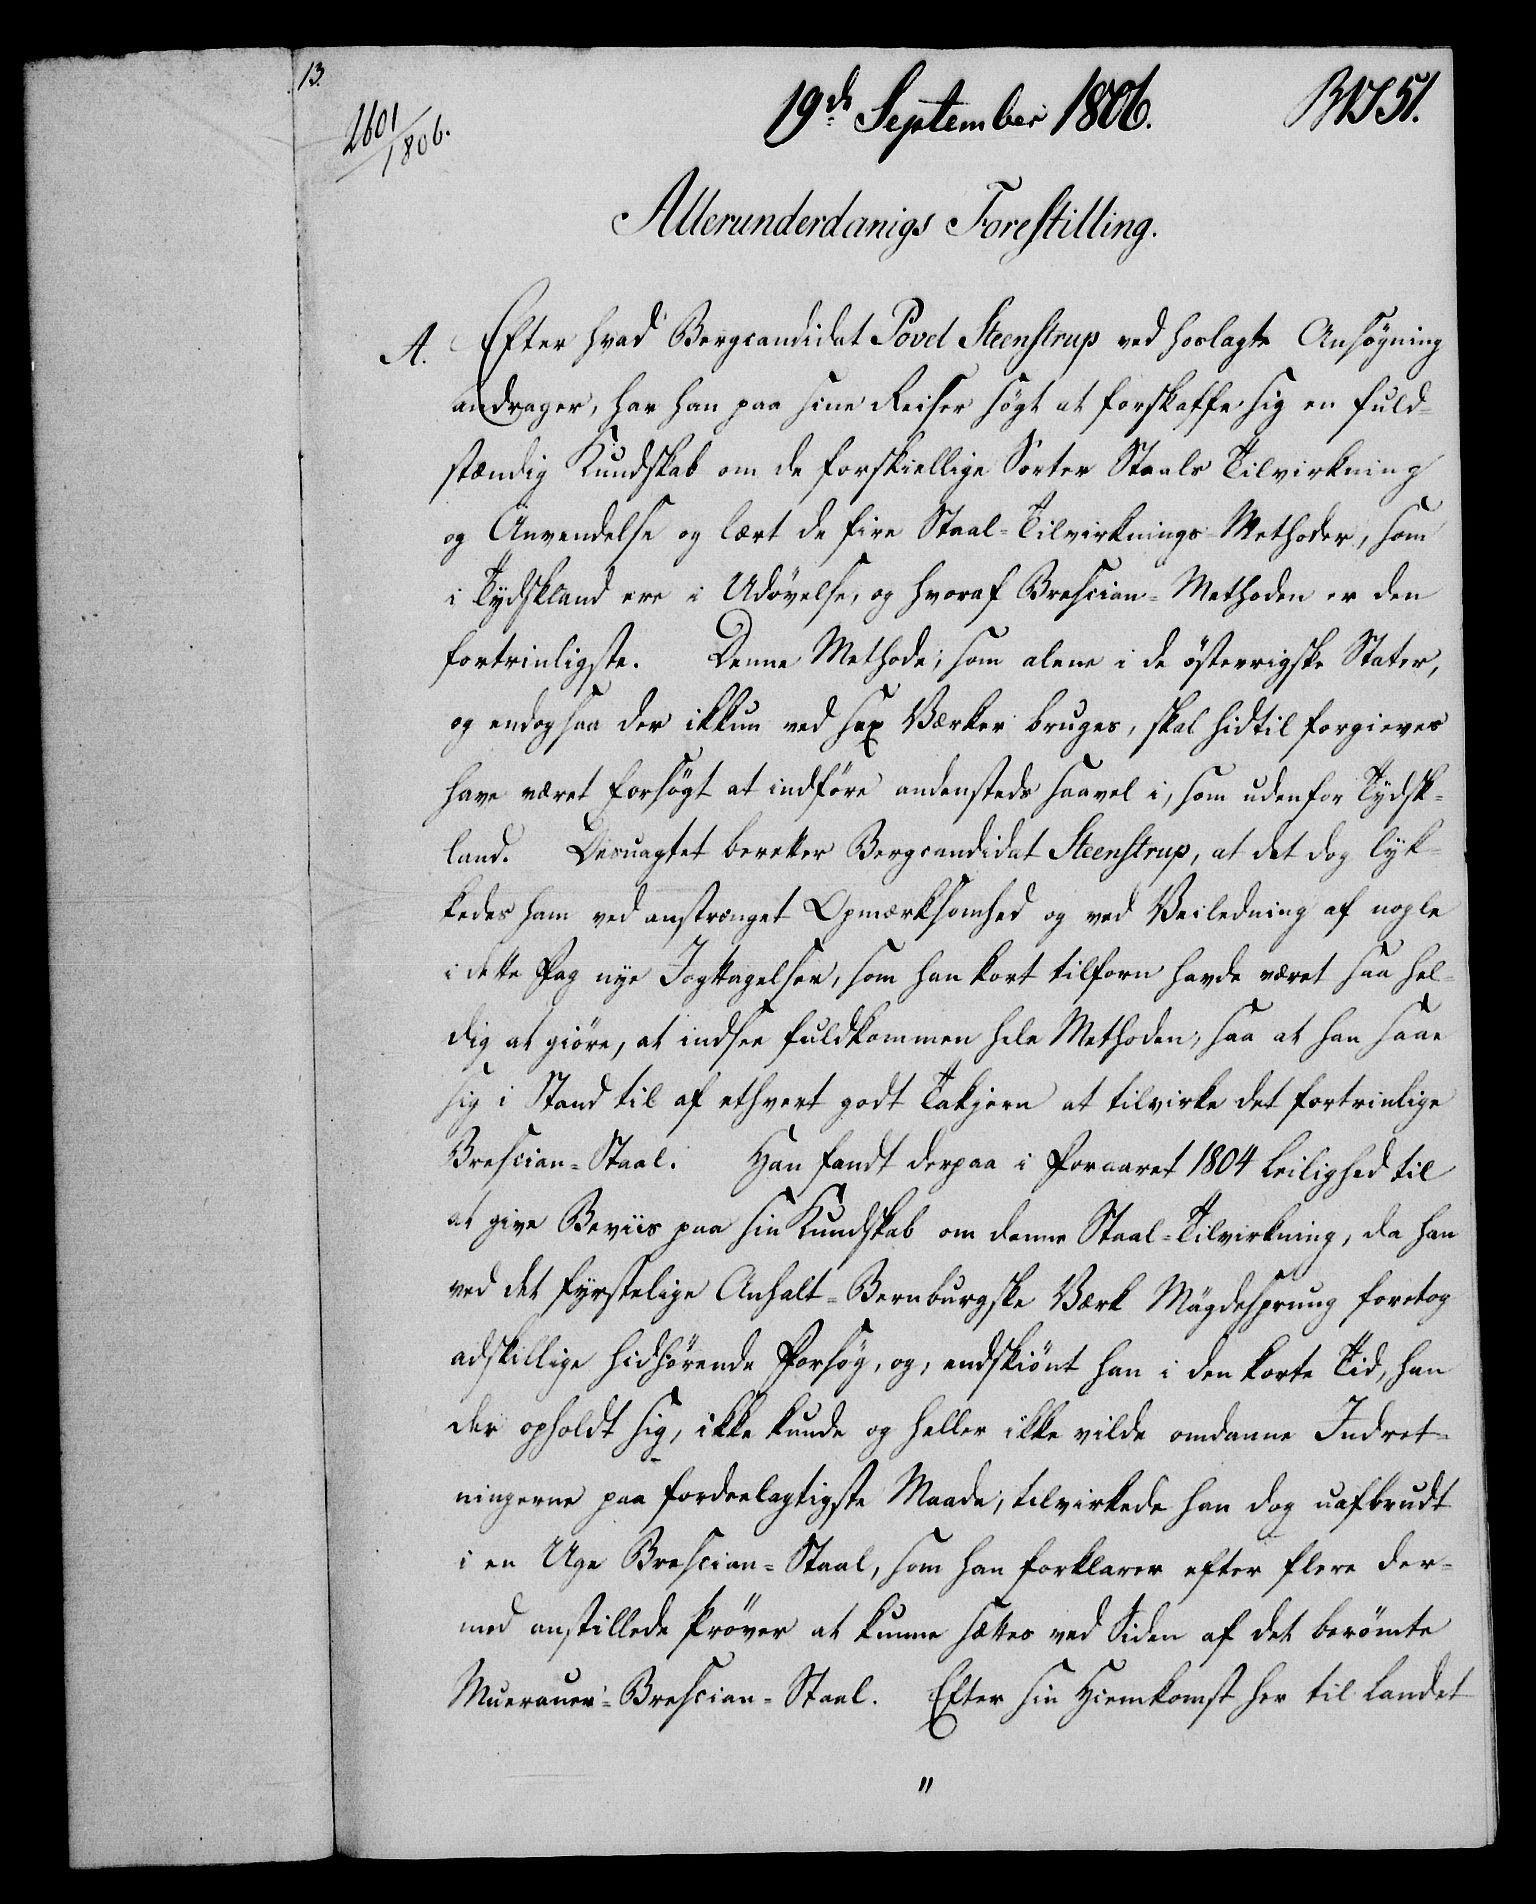 13.
2601/1806.
19de September 1806.
No 51.
Allerunderdanigs Forestilling.
A. Efter hvad Bergcandidat Povel Steenstrup ved hoslagte Ansøgning
andrager, har han paa sine Reiser søgt at forskaffe sig en fuld-
stændig Kundskab om de forskiellige Sorter Staals Tilvirkning
og Anvendelse og lært de fire Staal-Tilvirknings-Methoder, som
i Tydskland ere i Udövelse, og hvoraf Brescian-Methoden er den
fortrinligste. Denne Methode, som alene i de österrigske Stater,
og endog saa der ikkun ved sex Værker bruges, skal hidtil forgieves
have været forsögt at indföre andensteds saavel i, som udenfor Tydsk-
land. Desuagtet beretter Bergcandidat Steenstrup, at det dog lyk-
kedes ham ved anstrenget Opmærksomhed og ved Veiledning af nogle
i dette Fag nye Jagttagelser, som han kort tilforn havde været saa hel-
dig at giöre, at indsee fuldkommen hele Methoden, saa at han saae
sig i Stand til af ethvert godt Takjern at tilvirke det fortrinlige
Brescian-Staal. Han fandt derpaa i Foraaret 1804 Leilighed til
at give Beviis paa sin Kundskab om denne Staal-Tilvirkning, da han
ved det fyrstelige Anhalt-Bernburgske Værk Mägdesprung foretog
adskillige hidhörende Forsög, og, endskiönt han i den korte Tid, han
der opholdt sig, ikke kunde og heller ikke vilde omdanne Indret-
ningerne paa fordeelagtigste Maade, tilvirkede han dog uafbrudt
i en Uge Brescian-Staal, som han forklarer efter flere der-
med anstillede Pröver at kunne sættes ved Siden af det berömte
Muerauer-Brescian-Staal. Efter sin Hiemkomst her til Landet
"